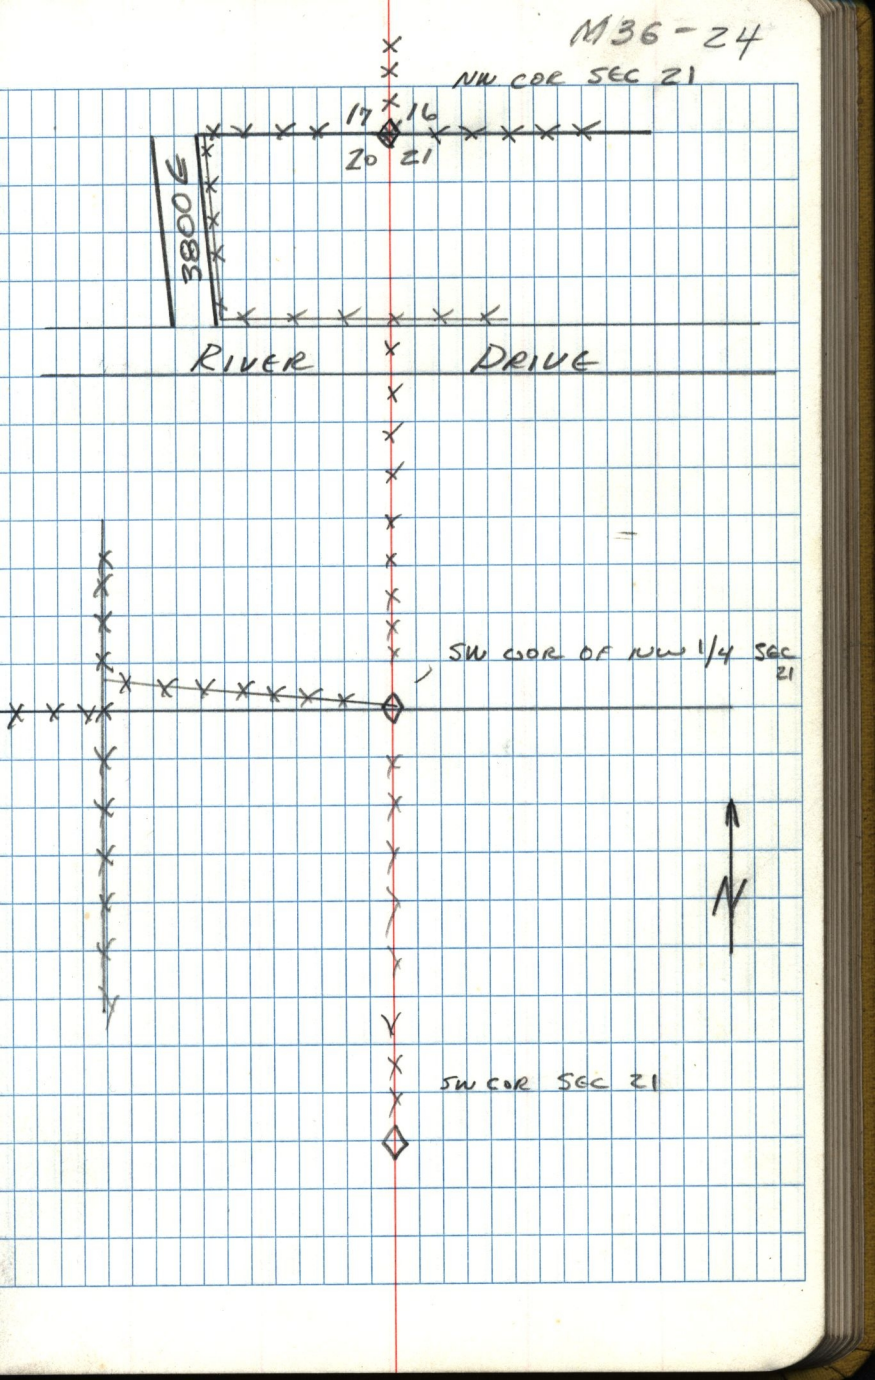 M36-24
NW COR SEC 21
17 16
20 21
3800 E
RIVER DRIVE
SW COR OF NW 1/4 SEC
21
N
SW COR SEC 21